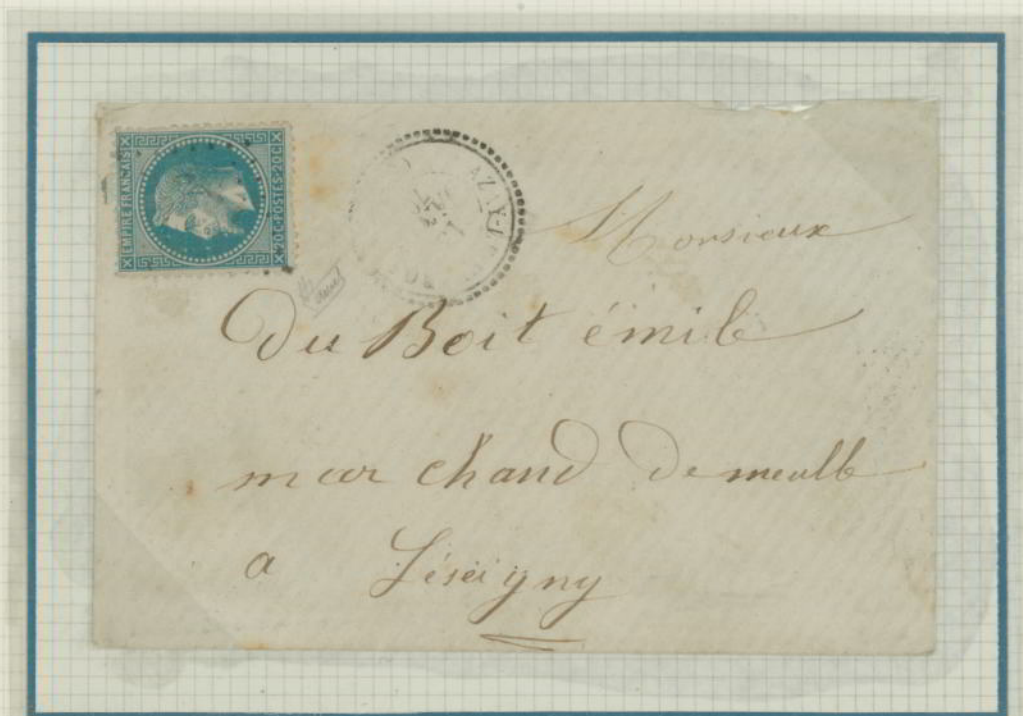 EMPIRE FRANÇAIS
20 C POSTES 20 C
AZAY-
Monsieur
Du Boit émile
mar chand de meulle
a Léseigny